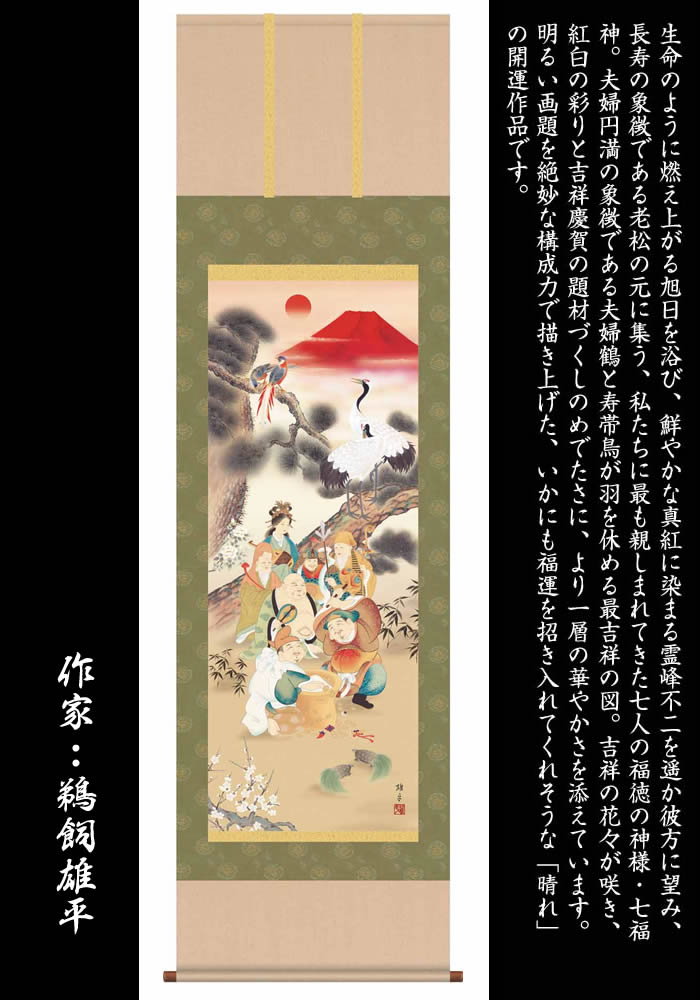 生命のように燃え上がる旭日を浴び、鮮やかな真紅に染まる霊峰不二を遥か彼方に望み、
長寿の象徴である老松の元に集う、私たちに最も親しまれてきた七人の福徳の神様・七福
神。夫婦円満の象徴である夫婦鶴と寿帯鳥が羽を休める最吉祥の図。吉祥の花々が咲き、
紅白の彩りと吉祥慶賀の題材づくしのめでたさに、より一層の華やかさを添えています。
明るい画題を絶妙な構成力で描き上げた、いかにも福運を招き入れてくれそうな「晴れ」
の開運作品です。
作家：鵜飼雄平
雄平